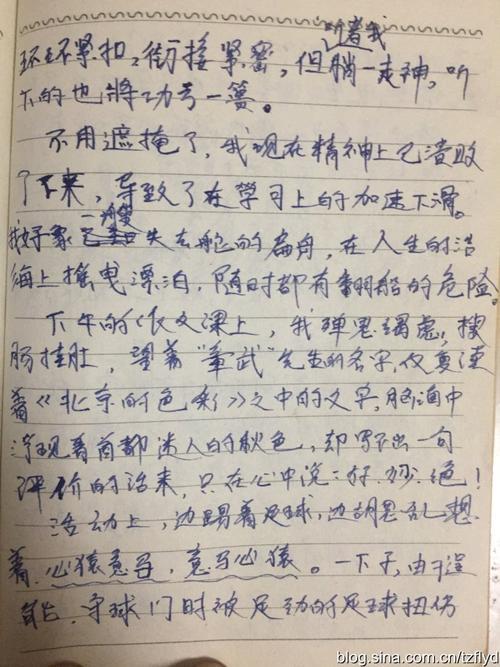 听着我
环环紧扣，衔接紧密，但腾一走神，听
下的也將功亏一篑。
不用遮掩了，我现在精神上已溃败
了下来，导致了在学习上的加速下滑。
一艘
我好象失去舵的扁舟，在人生的浩
海上摇曳漂泊，随时都有翻船的危险。
下午的作文课上，我弹思竭虑，搜
肠挂肚，望着“章武”先生的名字，反复读
着《北京的色彩》之中的文字，脑海中
浮现着首都迷人的秋色，却写不出一句
评价的话来，只在心中说：好、妙、绝！
活动上，边踢着足球，边胡思乱想
着，心猿意马，意马心猿。一下子，由于逞
能，守球门时被足劲的足球扭伤
blog.sina.com.cn/tzflyd